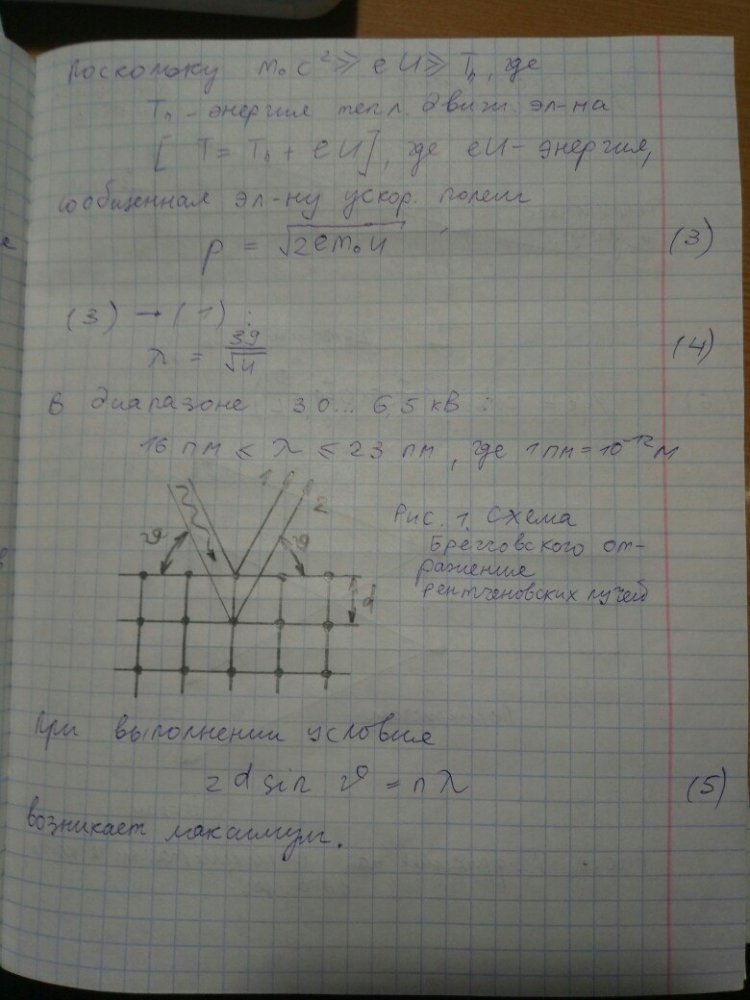 Поскольку m₀c² ≫ eU ≫ Tₙ, где
Tₙ - энергия тепл. движ. эл-на
[ T = Tₙ + eU ], где eU - энергия,
сообщенная эл-ну ускор. полем
p = √2em₀U (3)
(3) → (1) :
λ = 39/√U (4)
В диапазоне 3,0... 6,5 кВ :
16 пм ≤ λ ≤ 23 пм, где 1 пм = 10⁻¹² м
1
2
ϑ
ϑ
d
Рис. 1. Схема
Брегговского от-
ражение
рентгеновских лучей
При выполнении условия
2d sin ϑ = nλ (5)
возникает максимум.